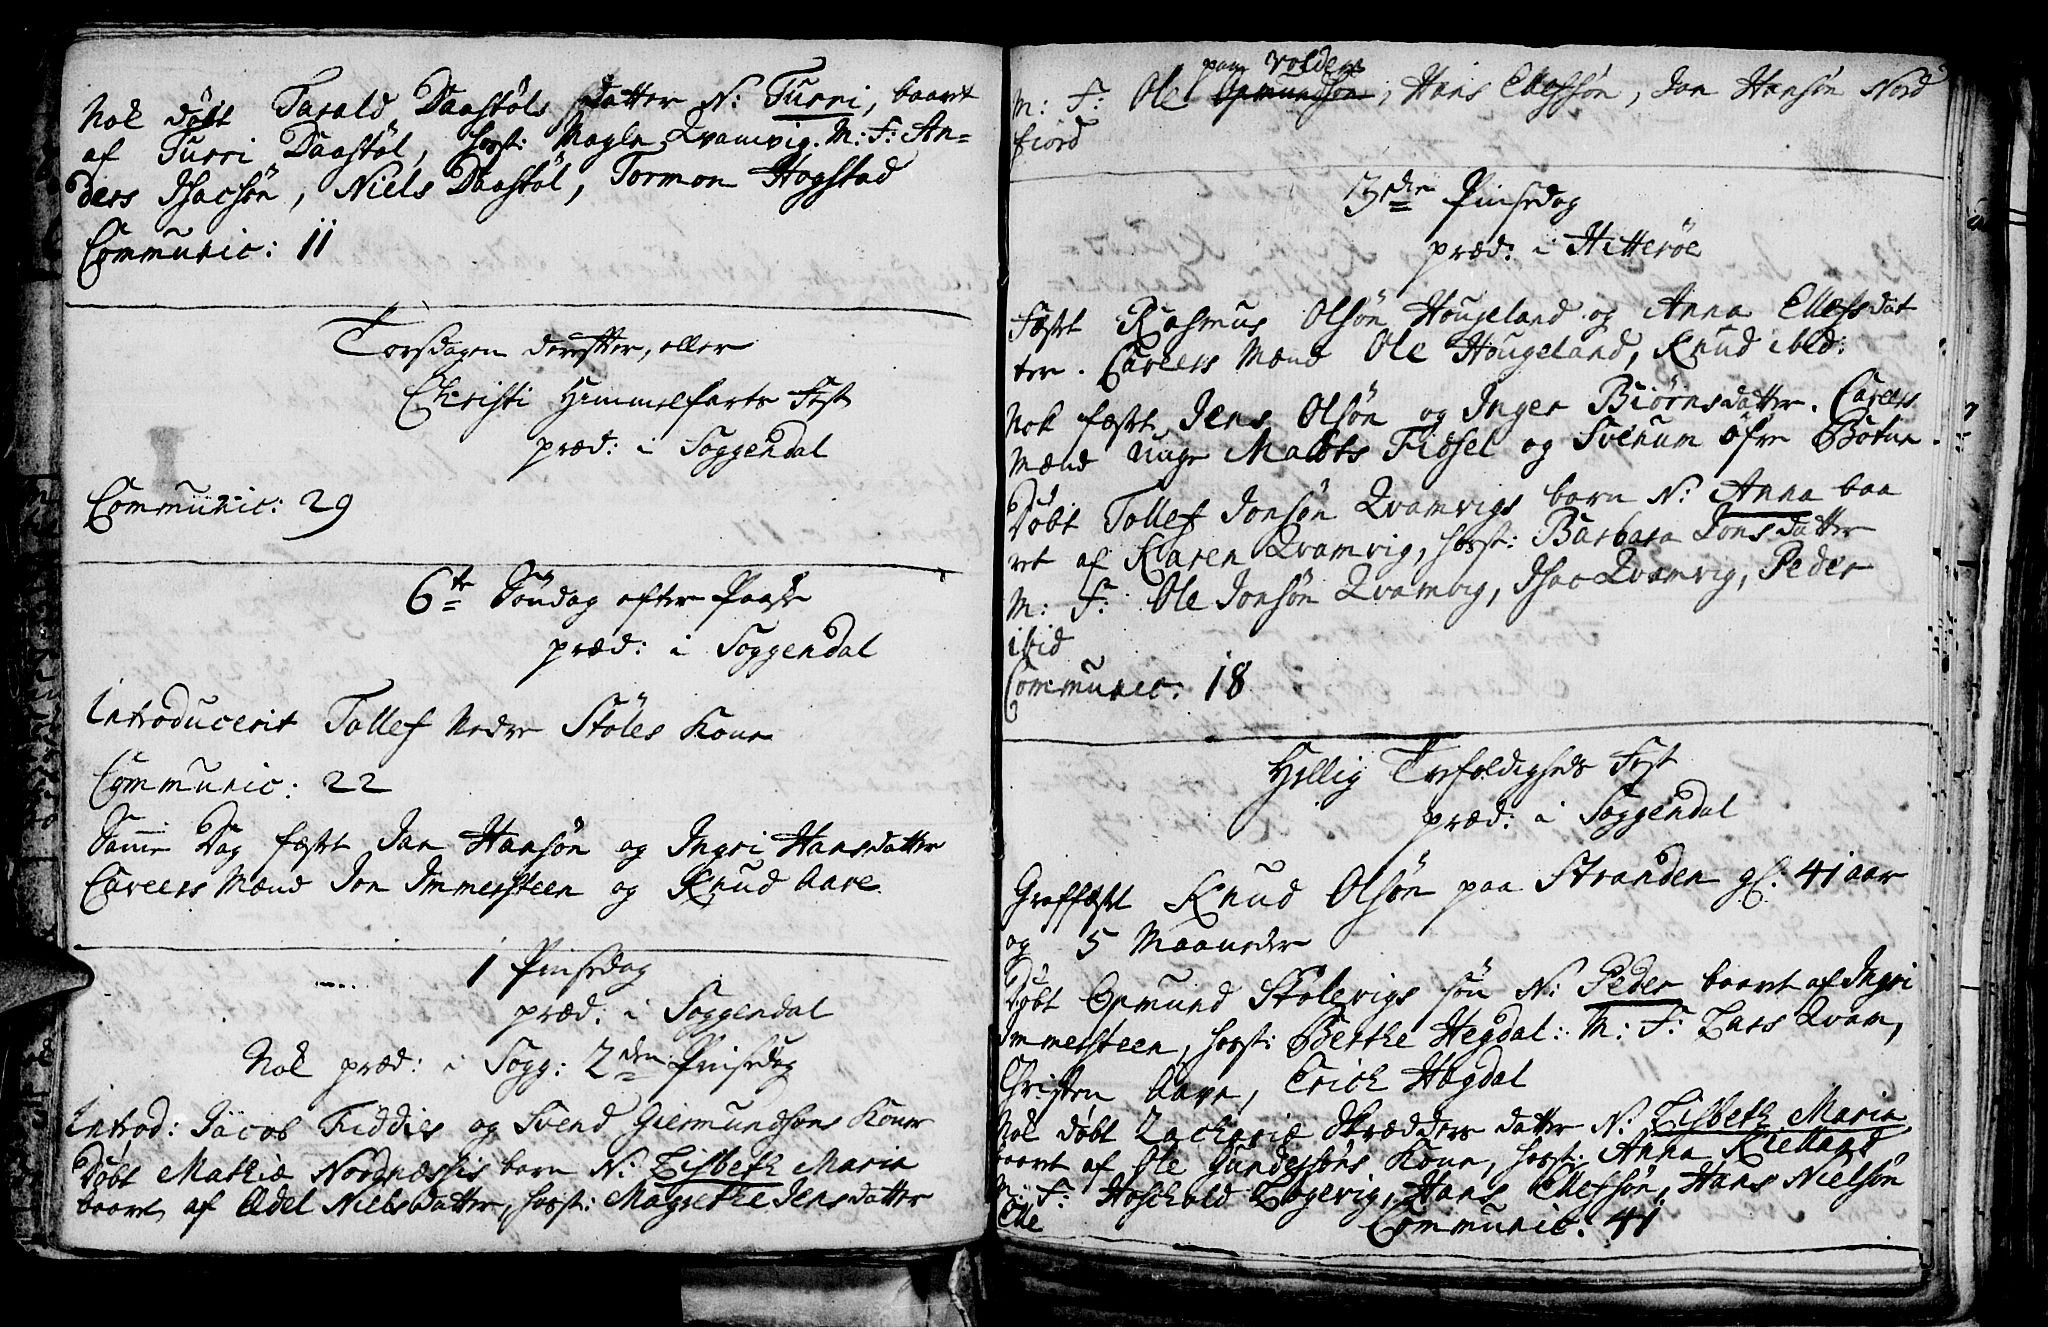 Nok døbt Tarald Daastøls Datter N: Turri, baaret
af Turri Daastøl, horst: Magle Qvamvig. M: F: An=
ders Isachsøn, Niels Daastøl, Tormon Hogstad
Communic: 11
Torsdagen derefter, eller
Christi Himmelfarts Fest
præd: i Soggendal
Communic: 29
6te Søndag efter Paaske
præd: i Soggendal
Introducerit Tollef Nedre Støles Kone
Communic: 22
Samme Dag fæstet Jan Hansøn og Ingri Hansdatter
Caveers Mænd Jon Immersteen og Knud Aare.
1 Pinsedag
præd: i Soggendal
Nok præd: i Sogg: 2den Pinsedag
Introd: Jacob Fiddies og Svend Giermundsøns Koner
Døbt Mathiæ Nordnæssis barn N: Lisbeth Maria
baaret af Adel Nielsdatter, horst: Magrethe Jensdatter
paa Volden
M: F: Ole Opmundsøn, Hans Ellefsøn, Jan Hansøn Nord
fiord
3die Pinsedag
præd: i Hitterøe
Fæstet Rasmus Olsøn Hougeland og Anna Ellefsdat
ter. Caveers Mænd Ole Hougeland, Knud ibid:
Nok fæstet Jens Olsøn og Inger Biørnsdatter. Caveers
Mænd unge Malbts Fidsel og Svenum øfre Botne.
Døbt Tollef Jonsøn Qvamvigs barn N: Anna baa
ret af Karen Qvamvig, horst: Barbara Jonsdatter
M: F: Ole Jonsøn Qvamvig, Isac Qvamvig, Peder
ibid
Communic: 18
Hellig Trefoldigheds Fest
præd: i Soggendal
Graffæstet Knud Olsøn paa Stranden gl: 41 aar
og 5 Maaneder
Døbt Opmund Stølevigs søn N: Peder baaret af Ingri
Immersteen, horst: Berthe Hegdal: M: F: Lars Qvam,
Christen Aare, Erich Hægdal
Nok døbt Zachariæ Skrædders datter N: Lisbeth Maria,
baaret af Ole Gundersøns Kone, horst: Anna Kielland
M: F: Hoskold Løgevig, Hans Ellefsøn, Hans Nielsøn
Elle
Communic: 41